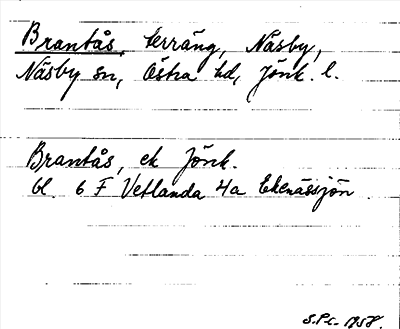 Brantås, terräng, Näsby,
Näsby sn, Östra hd, Jönk. l.
Brantås, ek Jönk.
bl. 6 F Vetlanda 4a Ekenässjön
S.P.L. 1958.